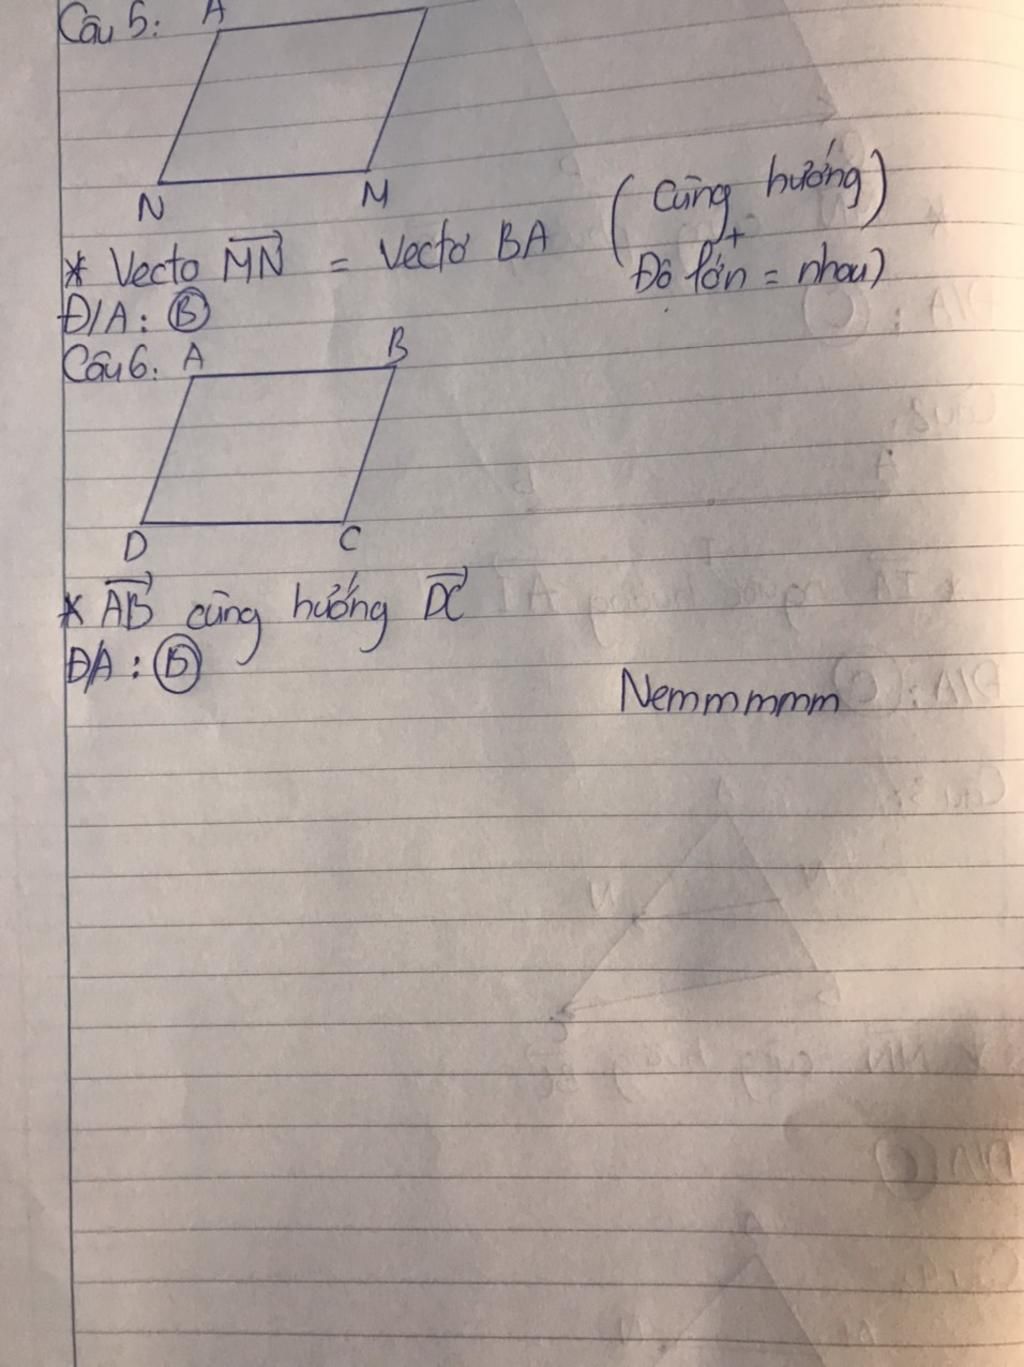 Câu 5: A
N M
* Vecto MN = Vectơ BA (Cùng hướng)
+
Độ lớn = nhau)
Đ/A: B
Câu 6: A B
D C
* AB cùng hướng DC
Đ/A: D
Nemmmmm